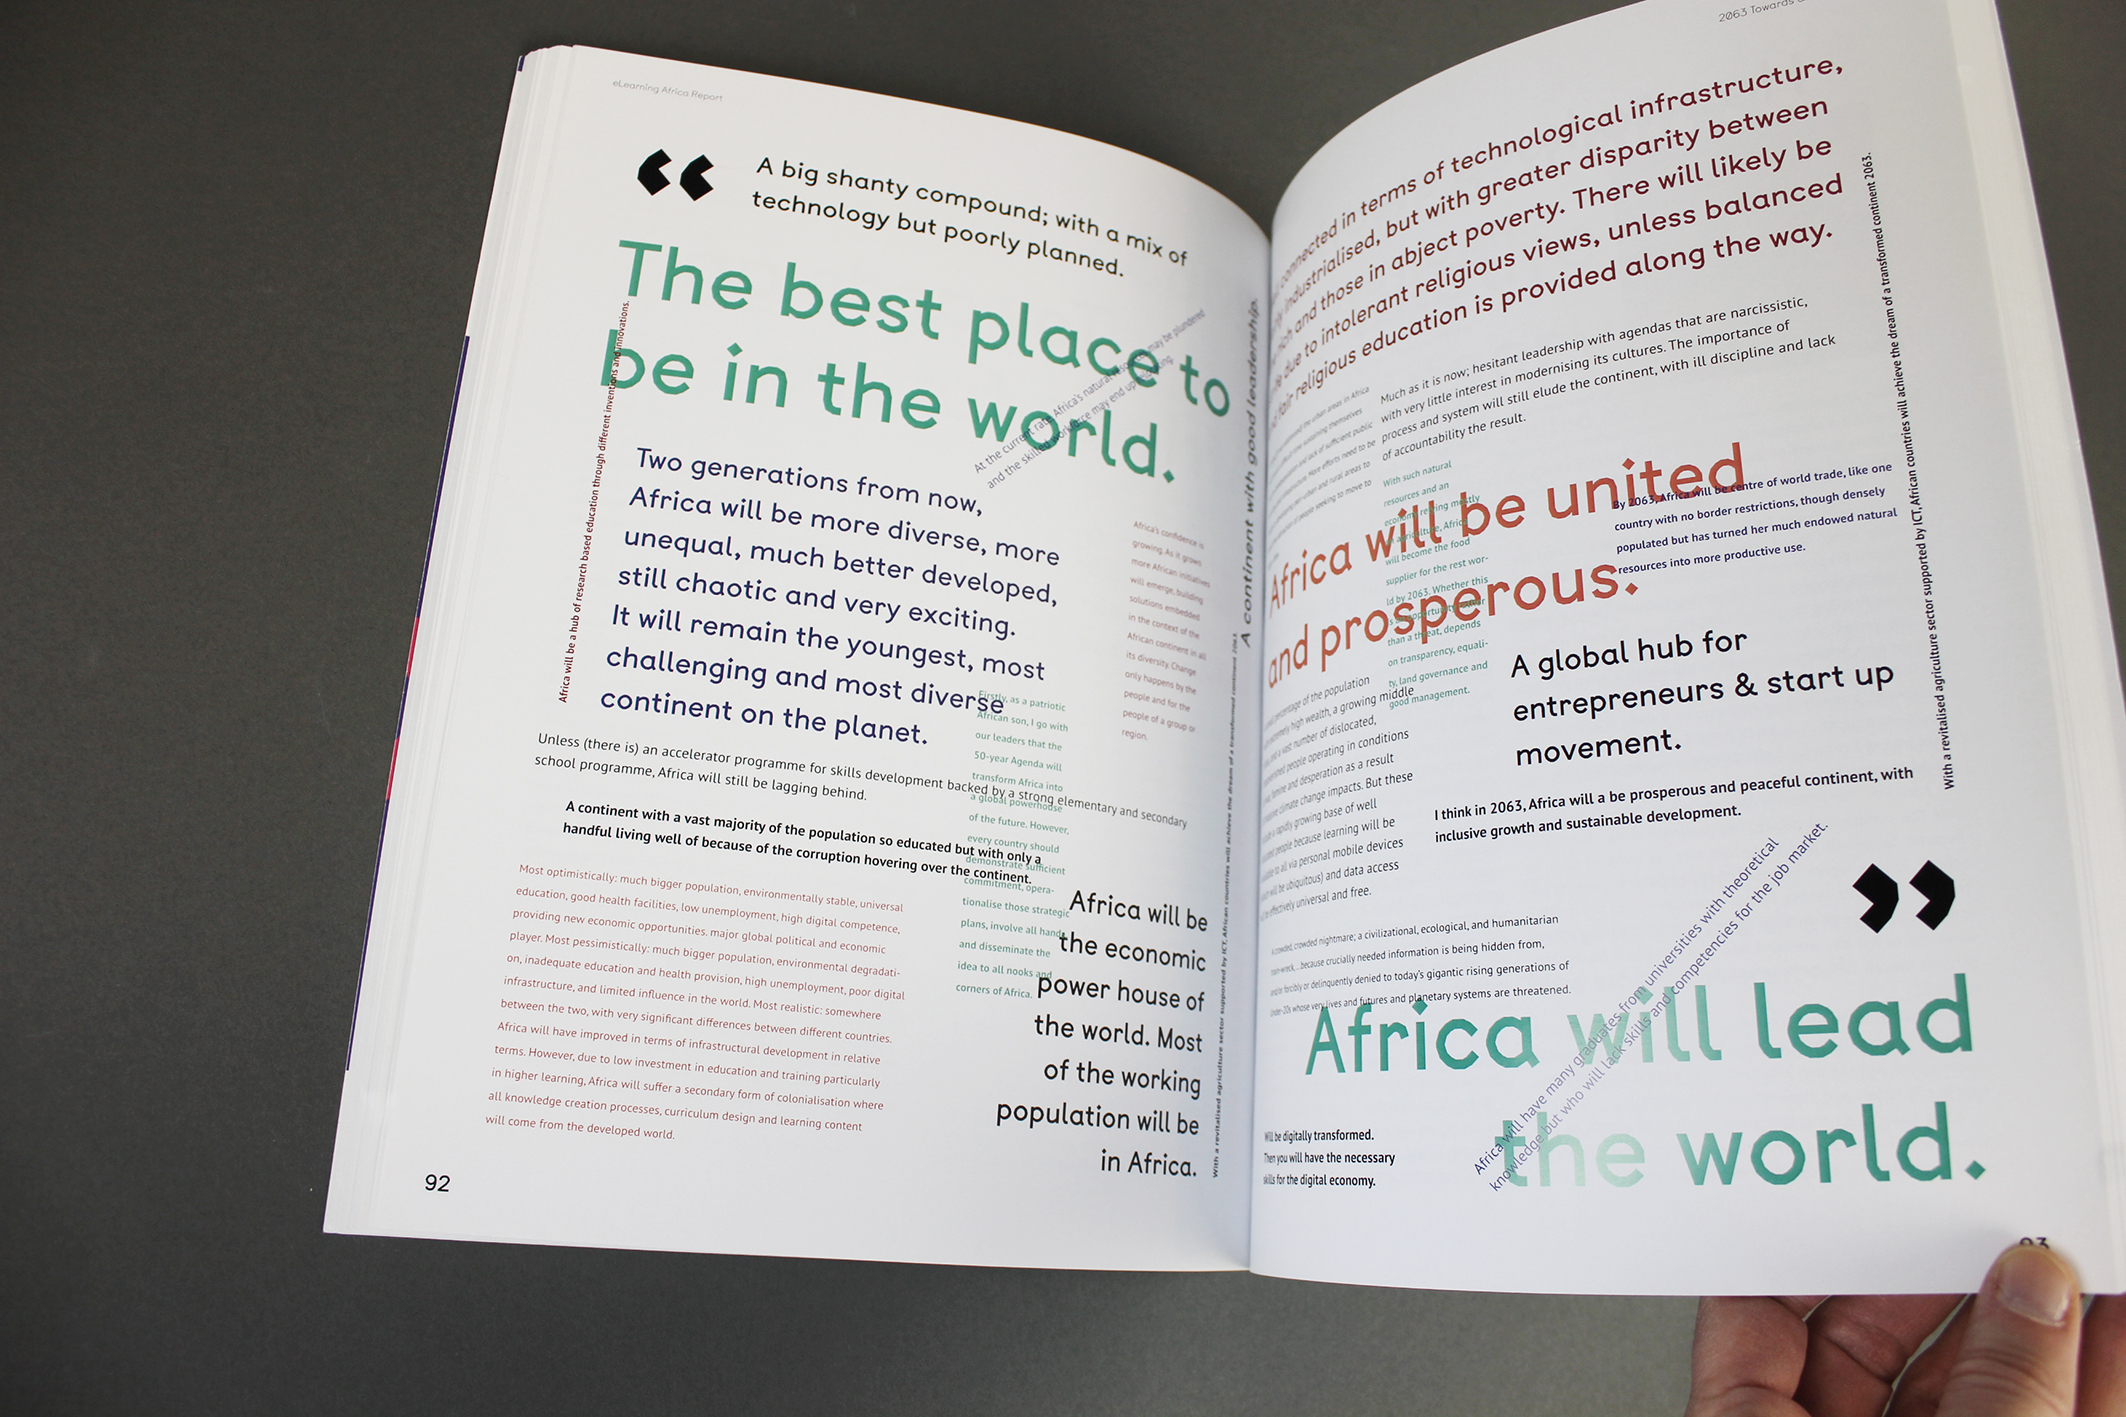 eLearning Africa Report
“
A big shanty compound; with a mix of
technology but poorly planned.
The best place to
be in the world.
At the current rate Africa's natural may be plundered
and the skilled workforce may end up
Africa will be a hub of research based education through different inventions and innovations.
A continent with good leadership.
Two generations from now,
Africa will be more diverse, more
unequal, much better developed,
still chaotic and very exciting.
It will remain the youngest, most
challenging and most diverse
continent on the planet.
Africa's confidence is
growing. As it grows
more African initiatives
will emerge, building
solutions embedded
in the context of the
African continent in all
its diversity. Change
only happens by the
people and for the
people of a group or
region.
Firstly, as a patriotic
African son, I go with
our leaders that the
50-year Agenda will
transform Africa into
a global powerhouse
of the future. However,
every country should
demonstrate sufficient
commitment, opera-
tionalise those strategic
plans, involve all hands
and disseminate the
idea to all nooks and
corners of Africa.
Unless (there is) an accelerator programme for skills development backed by a strong elementary and secondary
school programme, Africa will still be lagging behind.
A continent with a vast majority of the population so educated but with only a
handful living well of because of the corruption hovering over the continent.
Most optimistically: much bigger population, environmentally stable, universal
education, good health facilities, low unemployment, high digital competence,
providing new economic opportunities. major global political and economic
player. Most pessimistically: much bigger population, environmental degradati-
on, inadequate education and health provision, high unemployment, poor digital
infrastructure, and limited influence in the world. Most realistic: somewhere
between the two, with very significant differences between different countries.
Africa will have improved in terms of infrastructural development in relative
terms. However, due to low investment in education and training particularly
in higher learning, Africa will suffer a secondary form of colonialisation where
all knowledge creation processes, curriculum design and learning content
will come from the developed world.
Africa will be
the economic
power house of
the world. Most
of the working
population will be
in Africa.
With a revitalised agriculture sector supported by ICT, African countries will achieve the dream of a transformed continent 2063.
92
2063 Towards
connected in terms of technological infrastructure,
industrialised, but with greater disparity between
rich and those in abject poverty. There will likely be
due to intolerant religious views, unless balanced
fair religious education is provided along the way.
Much as it is now; hesitant leadership with agendas that are narcissistic,
with very little interest in modernising its cultures. The importance of
process and system will still elude the continent, with ill discipline and lack
of accountability the result.
urban areas in Africa
sustaining themselves
and lack of sufficient public
More efforts need to be
and rural areas to
of people seeking to move to
With such natural
resources and an
economy relying mostly
on agriculture, Africa
will become the food
supplier for the rest wor-
ld by 2063. Whether this
is an opportunity rather
than a threat, depends
on transparency, equali-
ty, land governance and
good management.
Africa will be united
and prosperous.
By 2063, Africa will be centre of world trade, like one
country with no border restrictions, though densely
populated but has turned her much endowed natural
resources into more productive use.
With a revitalised agriculture sector supported by ICT, African countries will achieve the dream of a transformed continent 2063.
A global hub for
entrepreneurs & start up
movement.
percentage of the population
extremely high wealth, a growing middle
and a vast number of dislocated,
people operating in conditions
famine and desperation as a result
climate change impacts. But these
a rapidly growing base of well
people because learning will be
to all via personal mobile devices
will be ubiquitous) and data access
effectively universal and free.
I think in 2063, Africa will a be prosperous and peaceful continent, with
inclusive growth and sustainable development.
A crowded, crowded nightmare; a civilizational, ecological, and humanitarian
train-wreck... because crucially needed information is being hidden from,
and/or forcibly or delinquently denied to today's gigantic rising generations of
under-20s whose very lives and futures and planetary systems are threatened.
”
Africa will have many graduates from universities with theoretical
knowledge but who will lack skills and competencies for the job market.
Africa will lead
the world.
Will be digitally transformed.
Then you will have the necessary
skills for the digital economy.
93